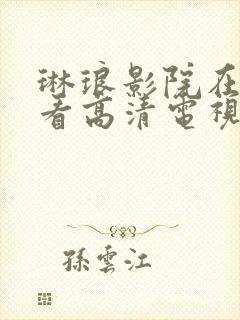 琳琅影院在
看高清電視
孫雲江